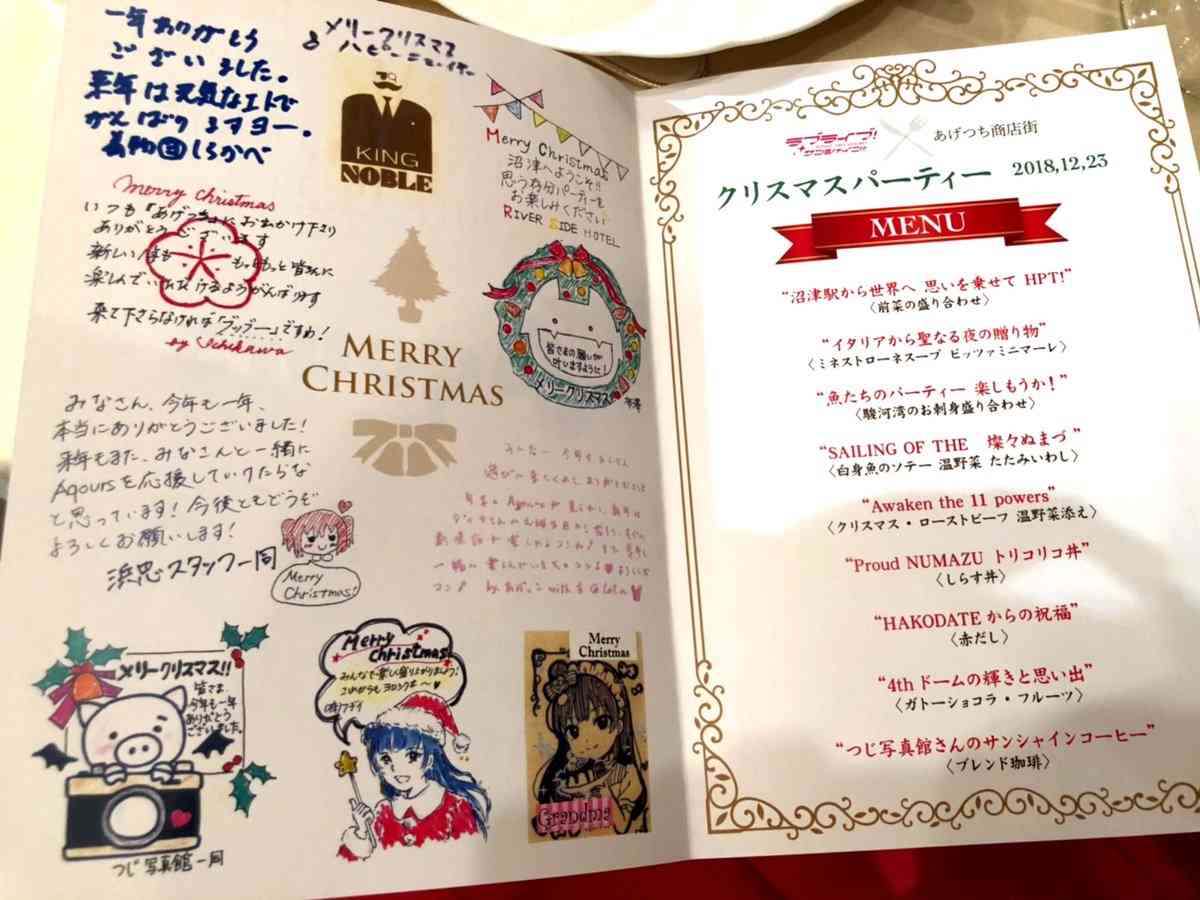 一年ありがとう
ございました。
来年は元気なエトで
がんばりますヨー。
着物 しらかべ
メリークリスマス
& ハッピーニューイヤー
KING
NOBLE
Merry Christmas
沼津へようこそ!!
思う存分パーティーを
お楽しみください
RIVER SIDE HOTEL
Merry Christmas
いつも「あげつち」におでかけ下さり
ありがとうございます
新しい年も もっともっと皆さんに
楽しんでいただけるようがんばります
来て下さらなければ「ブッブー」ですわ!
by Ichikawa
MERRY
CHRISTMAS
皆さまの願いが
叶いますように!
メリークリスマス
みなさん、今年も一年、
本当にありがとうございました!
来年もまた、みなさんと一緒に
Aqoursを応援していけたらな
と思っています!今後ともどうぞ
よろしくお願いします!
浜忠スタッフ一同
Merry
Christmas!
メリークリスマス!!
皆さま
今年も一年
ありがとう
ございました。
つじ写真館一同
Merry
Christmas
みんなで楽しく盛り上がりましょう!
これからもヨロシクネ〜
Merry
Christmas
Grandma
ラブライブ!
サンシャイン!!
あげつち商店街
クリスマスパーティー 2018,12,23
MENU
“沼津駅から世界へ 思いを乗せて HPT!”
〈前菜の盛り合わせ〉
“イタリアから聖なる夜の贈り物”
〈ミネストローネスープ ピッツァミニマーレ〉
“魚たちのパーティー 楽しもうか!”
〈駿河湾のお刺身盛り合わせ〉
“SAILING OF THE 燦々ぬまづ”
〈白身魚のソテー 温野菜 たたみいわし〉
“Awaken the 11 powers”
〈クリスマス・ローストビーフ 温野菜添え〉
“Proud NUMAZU トリコリコ丼”
〈しらす丼〉
“HAKODATEからの祝福”
〈赤だし〉
“4thドームの輝きと思い出”
〈ガトーショコラ・フルーツ〉
“つじ写真館さんのサンシャインコーヒー”
〈ブレンド珈琲〉